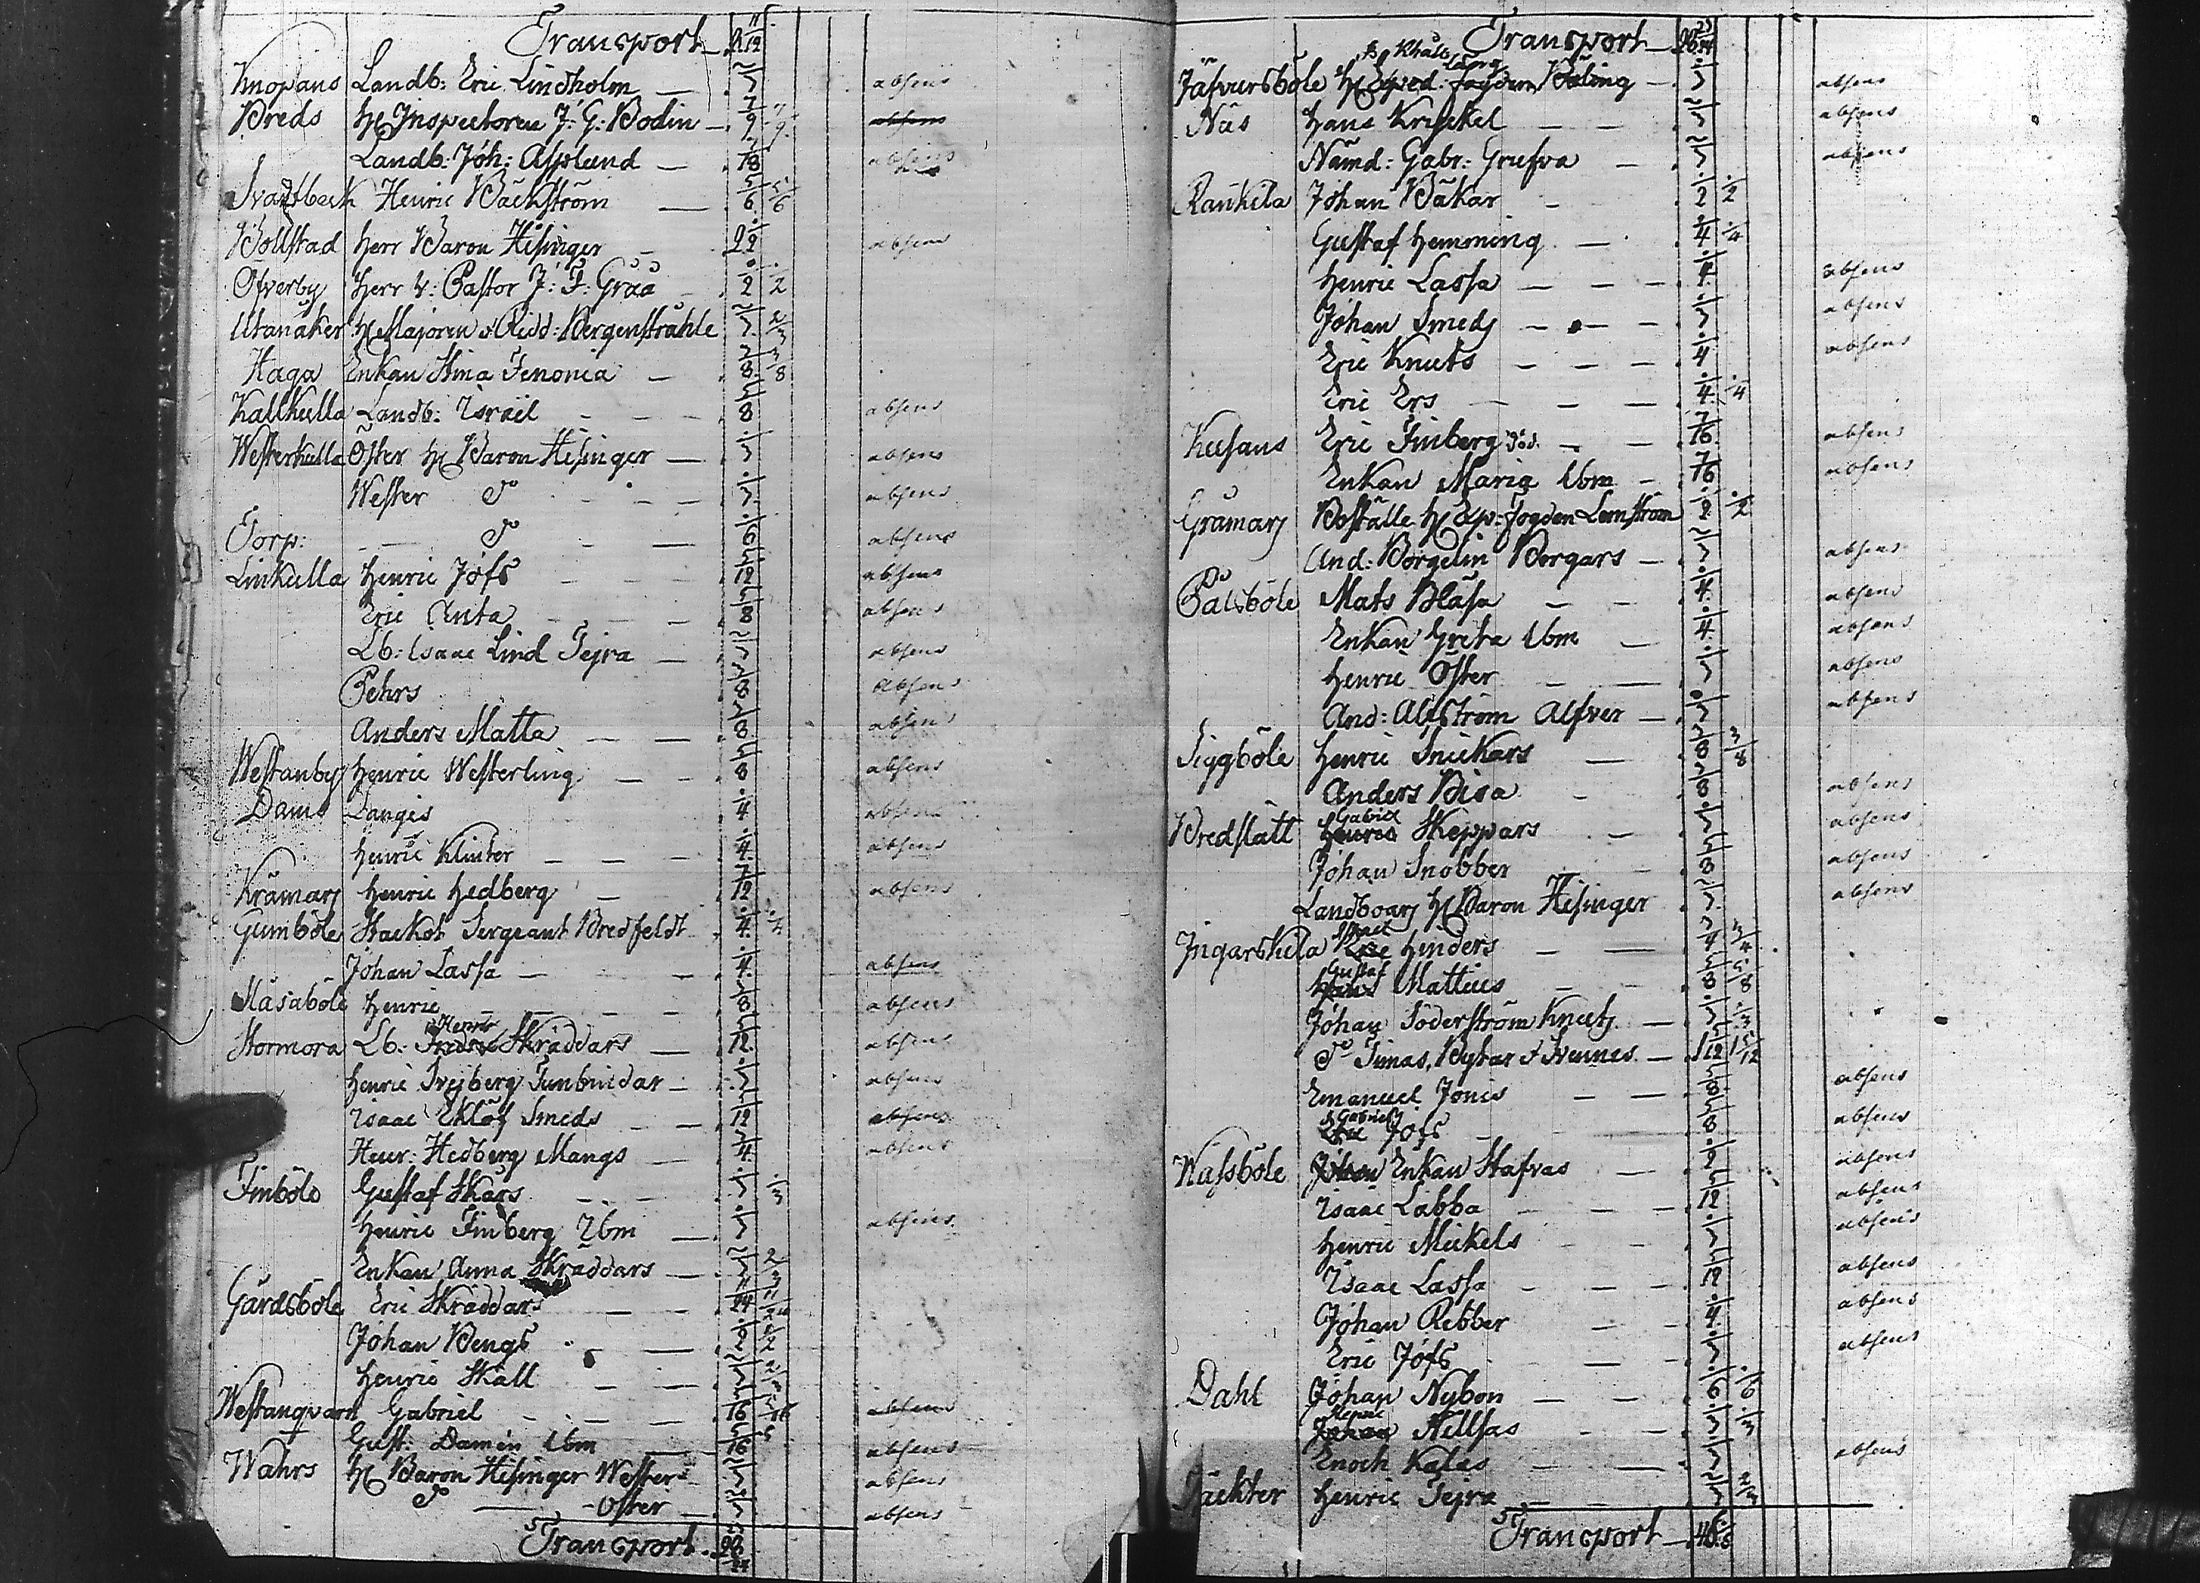 Transport 9 11/12
Knopans Landb: Eric Lindholm — absens
Breds H. Inspectoren J: G: Bodin — 7/9 7/9 absens
Landb: Joh: Asplund — absens
Svartbeck Henric Bäckström — 5/6 5/6
Böllstad Herr Baron Hisinger absens
Öfverby Herr V: Pastor J: F: Gråå 1/2 1/2
Utanåker H. Majoren o Ridd: Bergenstråhle 2/3 2/3
Haga Enkan Stina Fenonia — 3/8 3/8
Kallkulla Landb: Israël absens
Westerkulla Öster H. Baron Hisinger — absens
Wester Do absens
Torp: Do 1/6 absens
Linkulla Henric Jofs absens
Eric Anta absens
Lb: Isaac Lind Tejra — absens
Pehrs Absens
Anders Matta — absens
Westanby Henric Westerling absens
Dams Dangis 1/4 absens
Henric Klinter — 1/4 absens
Krämars Henric Hedberg 7/12 absens
Gumböle Stackot Sergeant Bredfeldt 1/4 1/4
Johan Lassa — 1/4 absens
Näsaböle Henric absens
Stormora Lb: Henric Skräddars — absens
Henric Svejberg Tunbindar — absens
Isaac Eklöf Smeds absens
Henr: Hedberg Mangs — absens
Finböle Gustaf Skärs 1/3 1/3
Henric Finberg Ibm absens
Enkan Anna Skräddars — 2/3 2/3
Gårdsböle Eric Skräddars — 11/24 11/24
Johan Bengs 1/2 1/2
Henric Skall — 2/3 2/3
Westanqvarn Gabriel 5/16 5/16 absens
Gust: Damén Ibm absens
Wahrs H. Baron Hisinger Wester absens
Do — Öster absens
Transport

Transport
Jäfversböle H. Exped: Fogden Båling — absens
Näs Hans Krickel absens
Nämd: Gabr: Grefva absens
Rankila Johan Båkar 1/2 1/2
Gustaf Hemming — 1/4 1/4
Henric Lassa 1/4 absens
Johan Smeds 1/3 absens
Eric Knuts 1/4 absens
Eric Ers 1/4 1/4
Kusans Eric Finberg död. 7/16 absens
Enkan Maria Ibm 7/16 absens
Gramars Boställe H. Exp: Fogden Lemström 1/2 1/2
And: Borgelin Borgars — absens
Pålsböle Mats Blåsa 1/4 absens
Enkan Greta Ibm 1/4 absens
Henric Öster 1/3 absens
And: Alfström Alfver — absens
Siggböle Henric Snickars 3/8 3/8
Anders Bisa 3/8 absens
Bredslätt Gabriel Skeppars absens
Johan Snobber absens
Landboars H. Baron Hisinger absens
Ingarskila Hinders 3/4 3/4
Gustaf Mattus 5/8 5/8
Johan Söderström Knuts 1/3 1/3
Do Simas, Bystar o Svennes — 1 5/12 1 5/12
Emanuel Jonis absens
Gabriel Jofs absens
Wassböle Enkan Stafvas absens
Isaac Labba absens
Henric Mickels absens
Isaac Lassa absens
Johan Rebber 1/4 absens
Eric Jofs absens
Dahl Johan Nybon 1/6 1/6
Henric Nillsas 1/3 1/3
Enoch Kalas absens
Täckter Henric Tejra 2/3 2/3
Transport